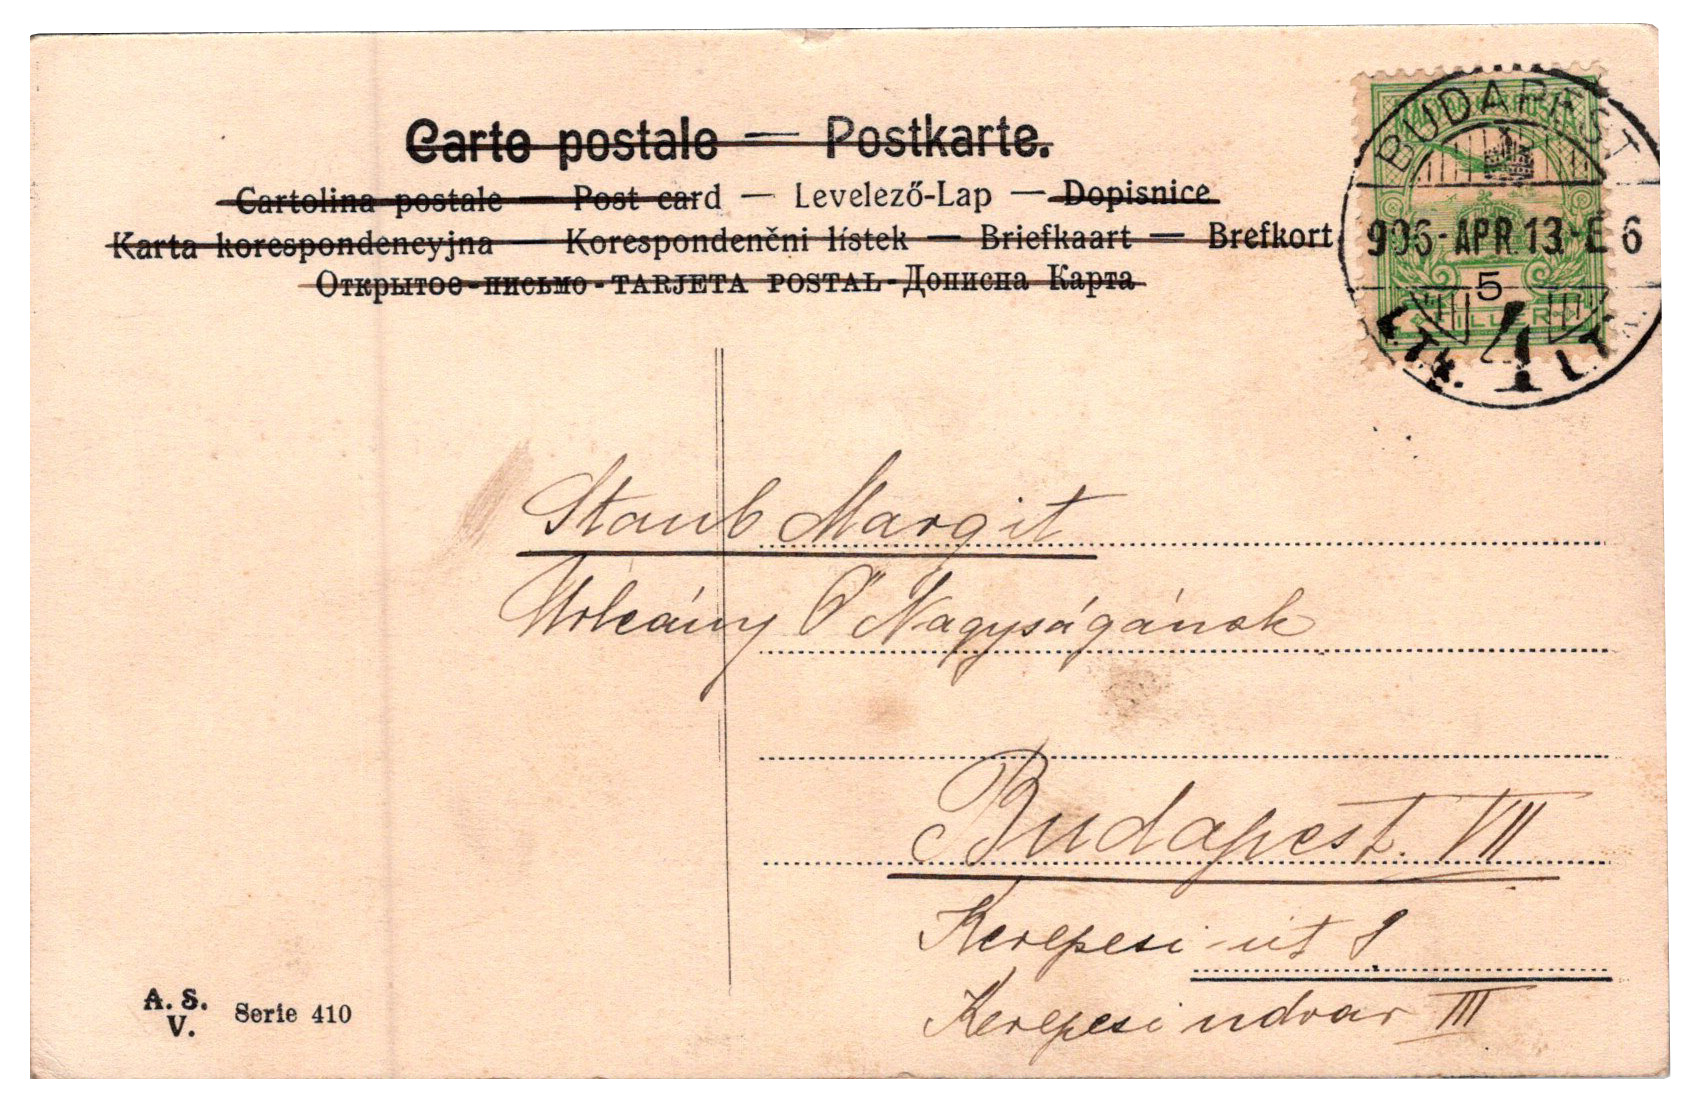 Carte postale — Postkarte.
Cartolina postale — Post card — Levelező-Lap — Dopisnice
Karta korespondencyjna — Korespondenčni lístek — Briefkaart — Brefkort
Открытое-письмо-TARJETA POSTAL-Дописна Карта
BUDAPEST
906-APR 13-E 6
5
FILLER
4
Staub Margit
Urleány Ő Nagyságának
Budapest. VII
Kerepesi-út 9
Kerepesi udvar III
A. S.
V.
Serie 410